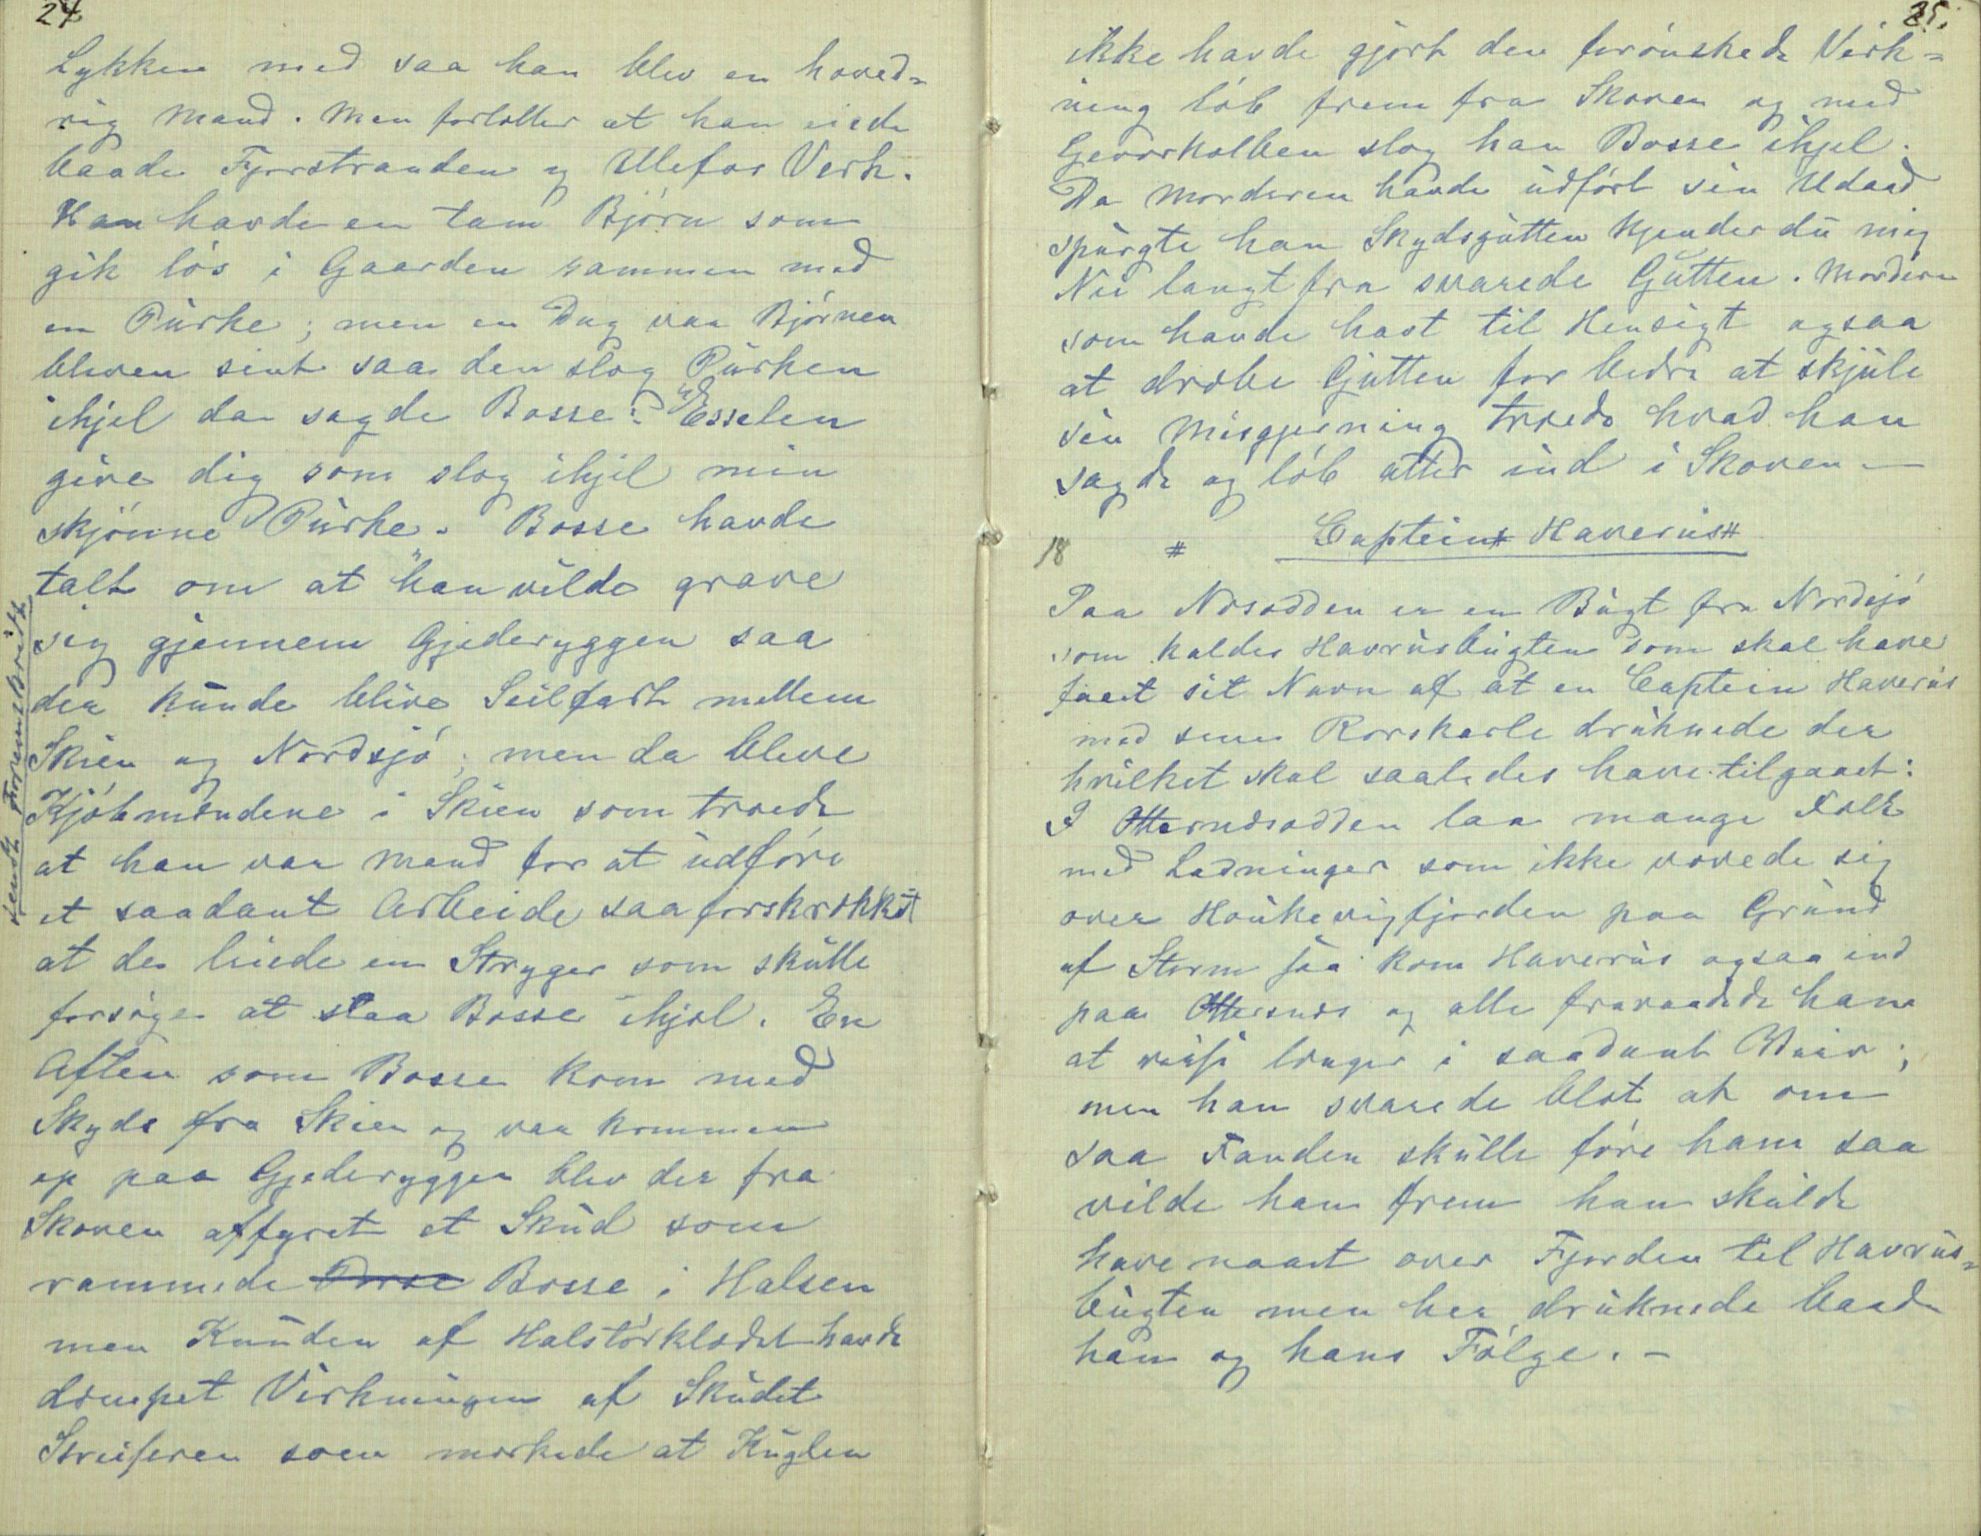 24
Lykken med saa han blev en hoved-
rig Mand. Men fortæller at han eiede
baade Fjærstranden og Ulefos Verk.
Han havde en tam Bjørn som
gik løs i Gaarden sammen med
en Purke; men en Dag var Bjørnen
bleven sint saa den slog Purken
ihjel da sagde Bosse: Esselen
give dig som slog ihjel min
skjønne Purke. Bosse havde
talt om at han vilde grave
sig gjennem Gjederyggen saa
der kunde blive Seilfart mellem
Skien og Nordsjø, men da bleve
Kjøbmændene i Skien som troede
at han var Mand for at udføre
et saadant Arbeide saa forskrækket
at de leiede en Stryger som skulle
forsøge at slaa Bosse ihjel. En
Aften som Bosse kom med
Skyds fra Skien og var kommen
op paa Gjederyggen blev der fra
Skoven affyret et Skud som
rammede Bosse i Halsen
men Knuden af Halstørklædet havde
dæmpet Virkningen af Skudet
som mærkede at Kuglen
sendt
25.
ikke havde gjort den forønskede Virk=
ning løb frem fra Skoven og med
Geværkolben slog han Bosse ihjel.
Da Morderen havde udført sin Udaad
spurgte han Skydsgutten Kjender du mig
Nei langt fra svarede Gutten. Morderen
som havde havt til Hensigt ogsaa
at dræbe Gutten for bedre at skjule
sin Misgjerning troede hvad han
sagde og løb atter ind i Skoven. —
18 # Captein Haverus #
Paa Næsodden er en Bugt fra Nordsjø
som kaldes Havrusbugten som skal have
faaet sit Navn af at en Captein Haverus
med sine Rorskarle druknede der
hvilket skal saaledes have tilgaaet:
I Otternæsodden laa mange Folk
med Ladninger som ikke vovede sig
over Houkevigfjorden paa Grund
af Storm saa kom Haverus ogsaa ind
paa Otternæs og alle fraraadede ham
at reise længer i saadant Veir;
men han svarede blot at om
saa Fanden skulle føre ham saa
vilde han frem han skulde
have naaet over Fjorden til Havrus=
bugten men her druknede baade
han og hans Følge. —